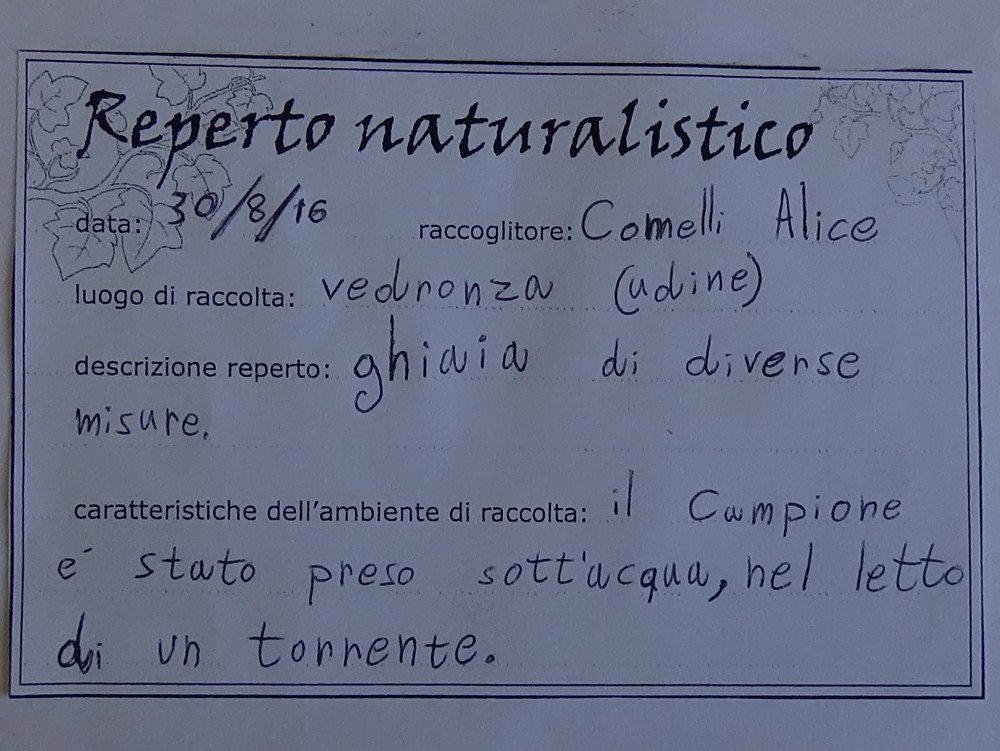 Reperto naturalistico
data: 30/8/16 raccoglitore: Comelli Alice
luogo di raccolta: vedronza (udine)
descrizione reperto: ghiaia di diverse
misure.
caratteristiche dell'ambiente di raccolta: il Campione
e' stato preso sott'acqua, nel letto
di un torrente.